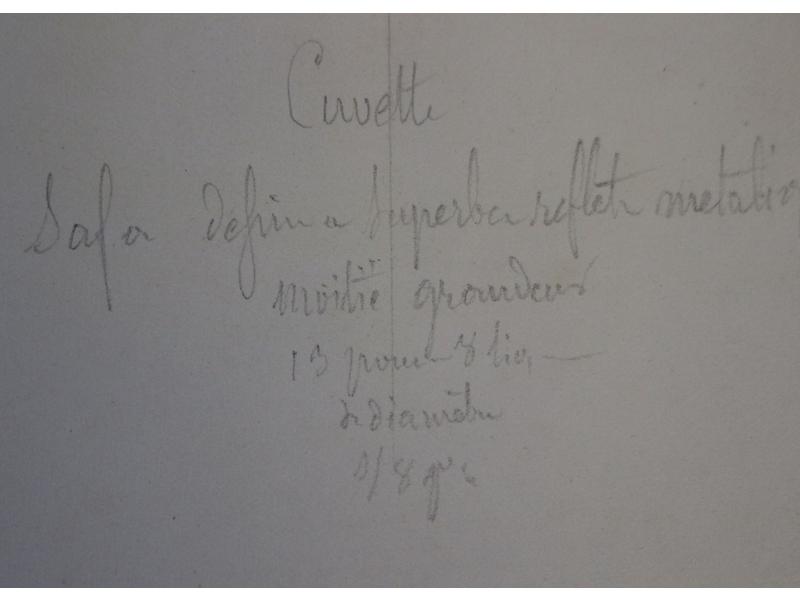 Cuvette
Safa defin a Superbe reflets metalic
moitié grandeur
13 pouce 8 lig.
de diamètre
1/8